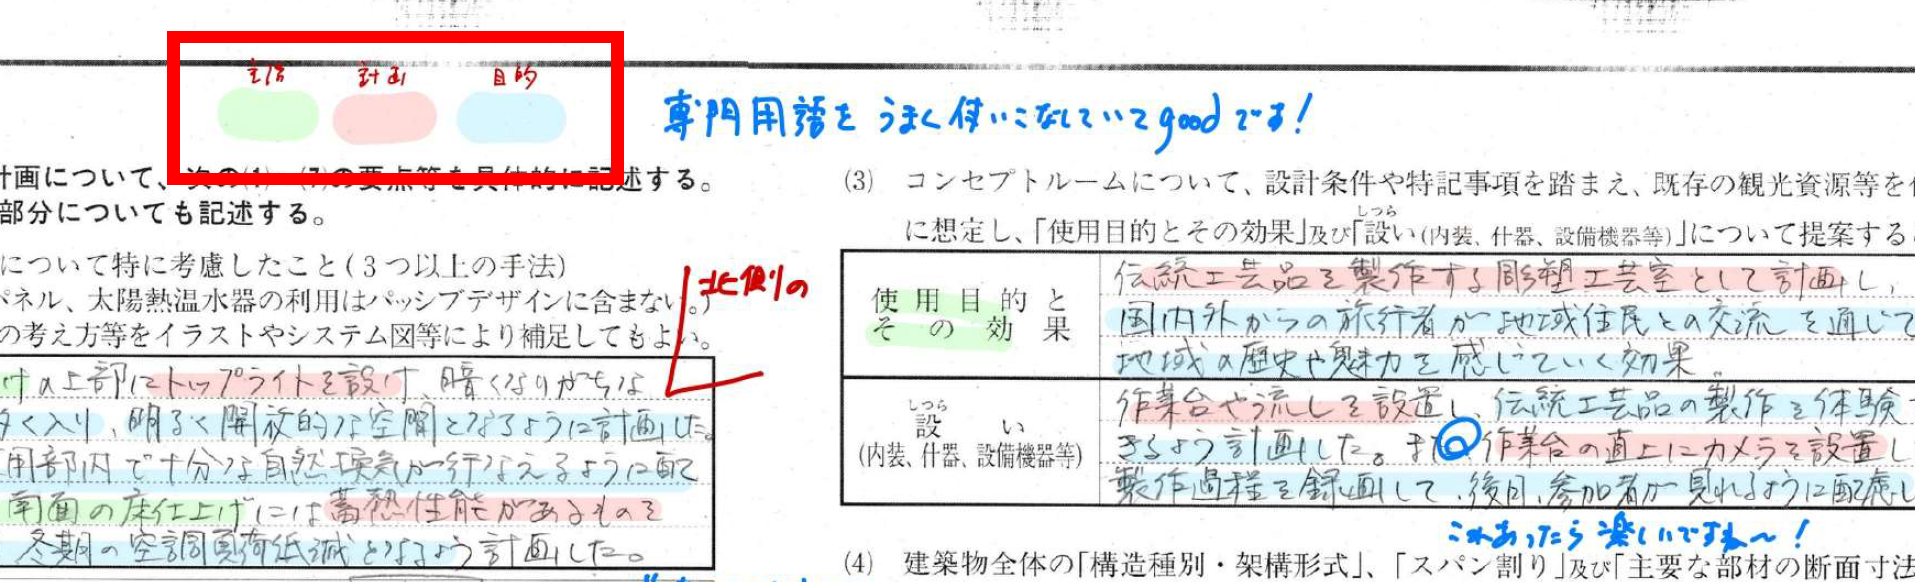 主語 計画 目的
専門用語をうまく使いこなしていてgoodです！
計画について、次の(1)～(7)の要点等を具体的に記述する。
部分についても記述する。
について特に考慮したこと(３つ以上の手法)
パネル、太陽熱温水器の利用はパッシブデザインに含まない。)
の考え方等をイラストやシステム図等により補足してもよい。
北側の
けの上部にトップライトを設け、暗くなりがちな
多く入り、明るく開放的な空間となるように計画した。
用部内で十分な自然換気が行なえるように配
南面の床仕上げには蓄熱性能があるものを
冬期の空調負荷低減となるよう計画した。
(3) コンセプトルームについて、設計条件や特記事項を踏まえ、既存の観光資源等を
に想定し、「使用目的とその効果」及び「設い(内装、什器、設備機器等)」について提案する
しつら
使用目的と
その効果
伝統工芸品を製作する彫塑工芸室として計画し、
国内外からの旅行者が地域住民との交流を通じて
地域の歴史や魅力を感じていく効果。
しつら
設い
(内装、什器、設備機器等)
作業台や流しを設置し、伝統工芸品の製作を体験
きるよう計画した。また、作業台の直上にカメラを設置し
製作過程を録画して、後日、参加者が見れるように配慮し
これあったら楽しいですね～！
(4) 建築物全体の「構造種別・架構形式」、「スパン割り」及び「主要な部材の断面寸法